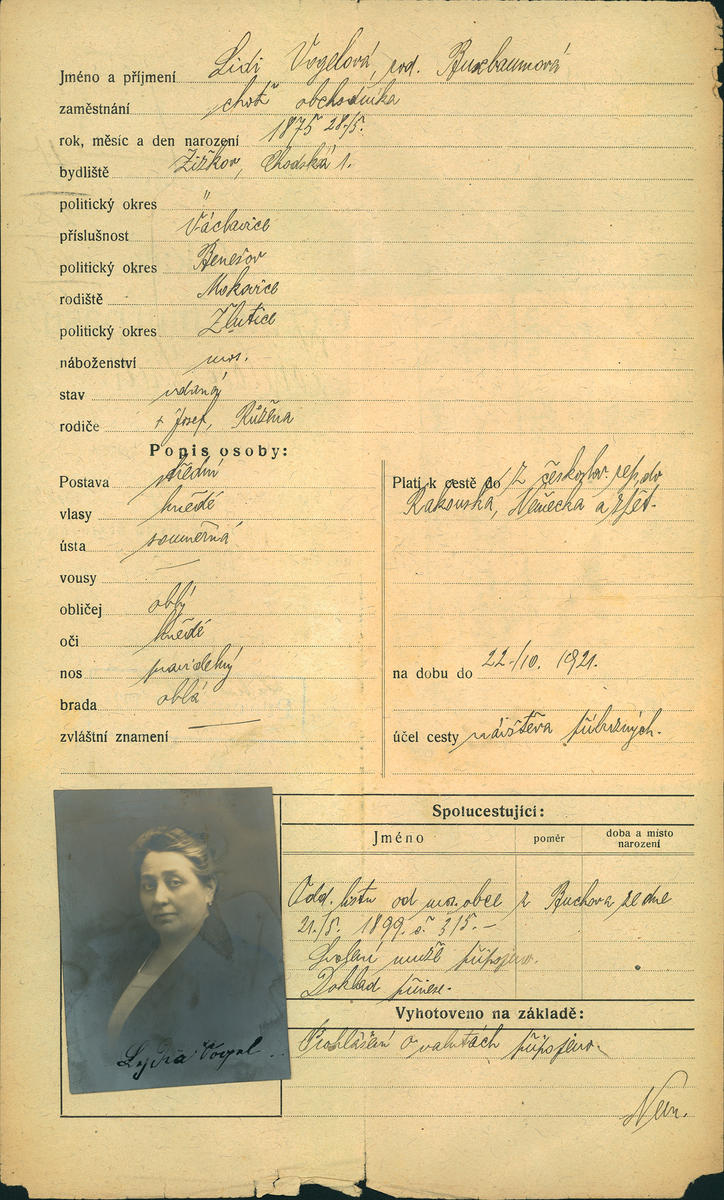 Jméno a příjmení Lidi Vogelová, rod. Buxbaumová
zaměstnání choť obchodníka
rok, měsíc a den narození 1875 28./5.
bydliště Žižkov, Chodská 1.
politický okres "
příslušnost Václavice
politický okres Benešov
rodiště Mokovice
politický okres Žlutice
náboženství mos.
stav vdaná
rodiče + Josef, Růžena
Popis osoby:
Postava střední
vlasy hnědé
ústa souměrná
vousy —
obličej oblý
oči hnědé
nos pravidelný
brada oblá
zvláštní znamení —
Platí k cestě do z českoslov. rep. do
Rakouska, Německa a zpět.
na dobu do 22./10. 1921.
účel cesty návštěva příbuzných.
Spolucestující:
Jméno poměr doba a místo narození
Odd. listu od mos. obce z Buchova ze dne
21./5. 1899 č. 315.–
Svolení muže připojeno.
Doklad přinese.
Vyhotoveno na základě:
Prohlášení o valutách připojeno.
Lydia Vogel